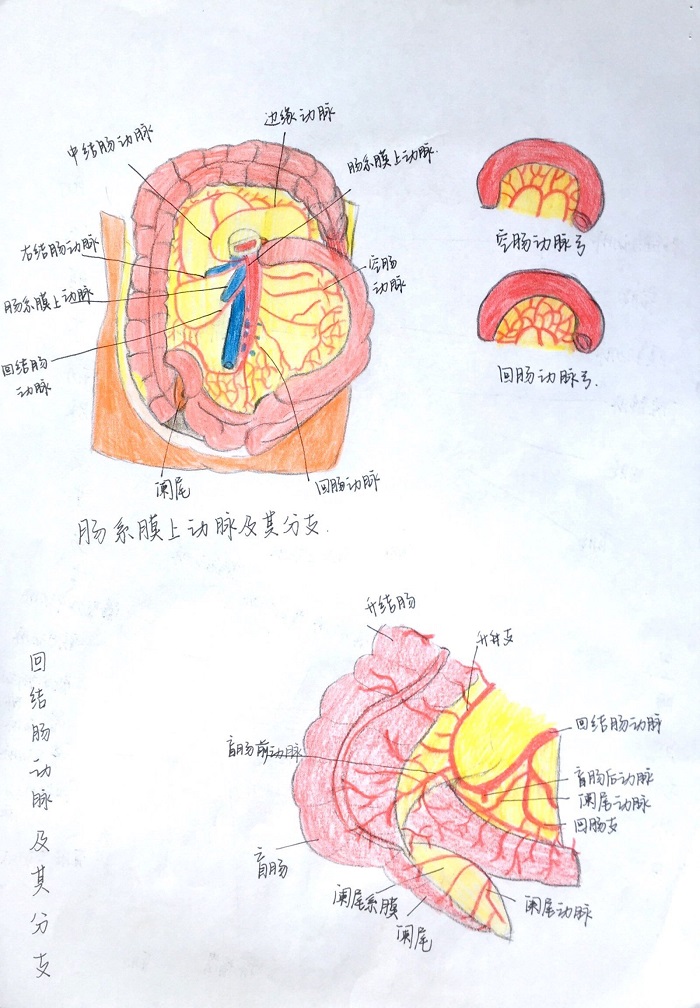 边缘动脉
中结肠动脉
肠系膜上动脉.
右结肠动脉
空肠
动脉
肠系膜上动脉
回结肠
动脉
阑尾
回肠动脉
肠系膜上动脉及其分支.
空肠动脉弓
回肠动脉弓.
升结肠
升升支
回结肠动脉
盲肠前动脉
盲肠后动脉
阑尾动脉
回肠支
盲肠
阑尾系膜
阑尾
阑尾动脉
回结肠动脉及其分支